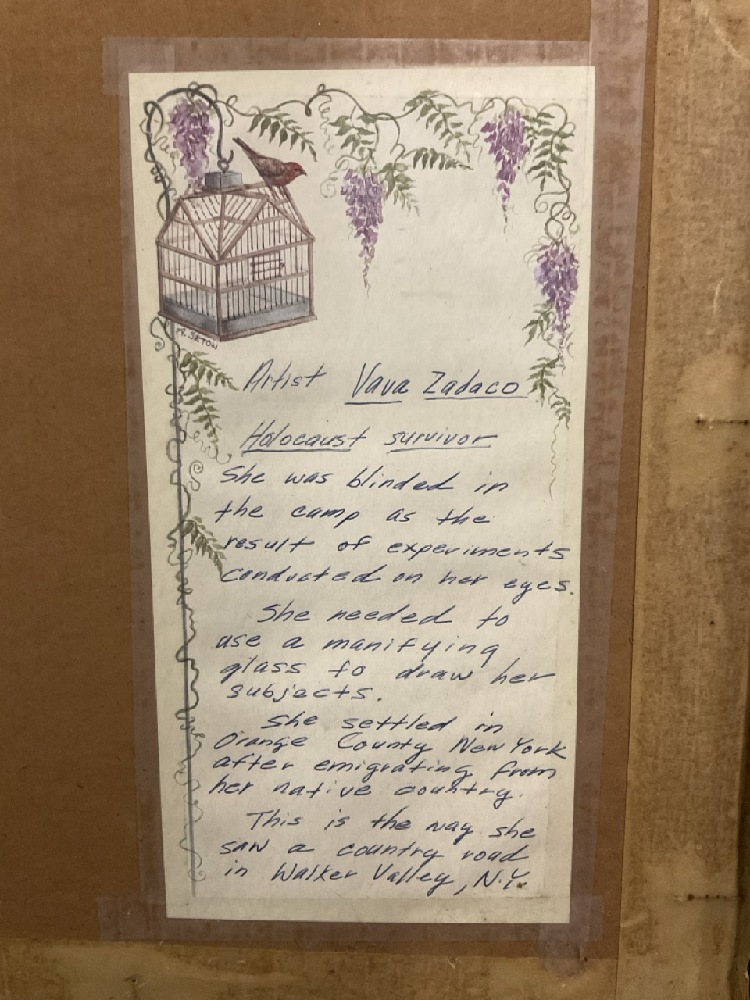 M. SETON
Artist Vava Zadaco
Holocaust survivor
She was blinded in
the camp as the
result of experiments
conducted on her eyes.
She needed to
use a manifying
glass to draw her
subjects.
She settled in
Orange County New York
after emigrating from
her native country.
This is the way she
saw a country road
in Walker Valley, N.Y.